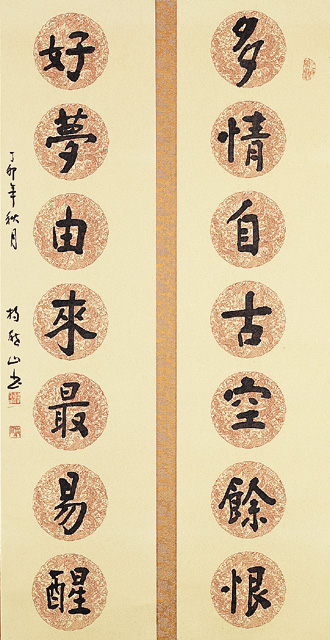 多情自古空餘恨
好夢由來最易醒
丁卯年秋月